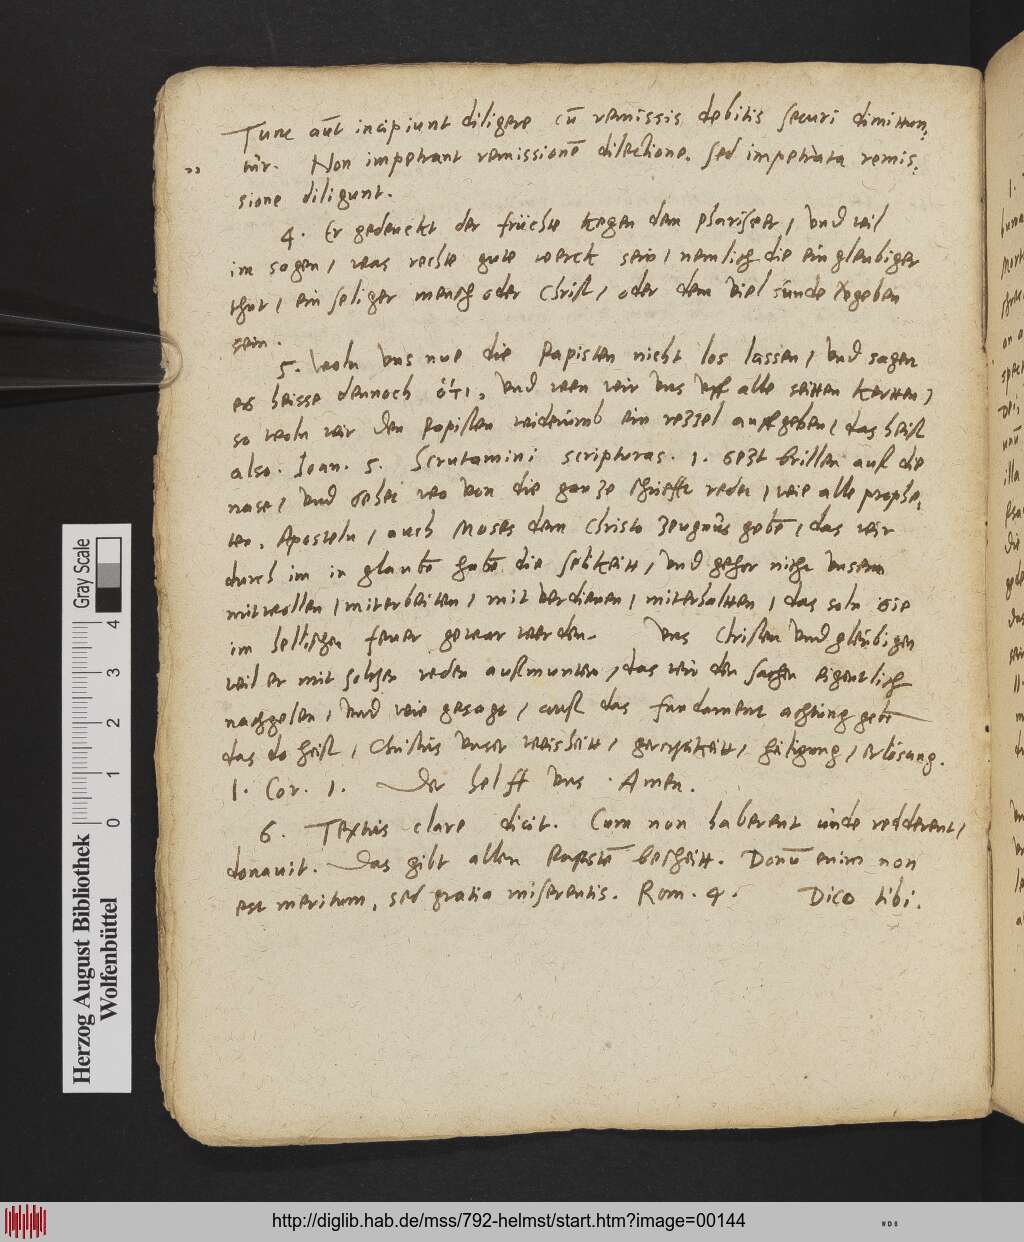 Tunc aūt incipiunt diligere cū remissis debitis securi dimitton,
tur. Non impetrant remissionē dilectione. sed impetrata remis,
sione diligunt.
4. Er gedenckt der früchte kegen dem phariseer, vnd wil
im sagen, was rechte gute werck sein, nemlich die ein gleubiger
thut, ein seliger mensch oder Christ, oder dem viel sünde vergeben
sein.
5. Woln vns nue die Papisten nicht los lassen, vnd sagen
es heisse dennoch ὅτι, vnd wen wir vns vff alle seitten kertten,
so woln wir den papisten widerumb ein retzel auffgeben, das heist
also. Joan. 5. Scrutamini scripturas. 1. setzt brillen auff die
nase, vnd sehet wo von die gantze schrifft redet, wie alle prophe,
ten, Aposteln, auch Moses dem Christo zeugnus gebē, das wir
durch im in glaubē habē die selikeitt, vnd gehor nicht vnserm
mitwollen, miterbeiten, mit verdienen, miterhaltten, das soln sie
im hellischen feuer gewar werden. Vns Christen vnd gleubigen
wil er mit solchen reden auffmuntern, das wir den sachen eigentlich
nachgehen, vnd wie gesagt, auff das fundament achtung gebē
das do heist, Christus vnser weisheitt, gerechtikeitt, heiligung, erlösung.
1. Cor. 1. Der helff vns. Amen.
6. Textus clare dicit. Cum non haberent unde redderent,
donauit. Das gibt allen Papistē bescheitt. Donū enim non
est meritum, sed gratia miserentis. Rom. 4. Dico tibi.
Gray Scale
0 1 2 3 4
Herzog August Bibliothek
Wolfenbüttel
http://diglib.hab.de/mss/792-helmst/start.htm?image=00144